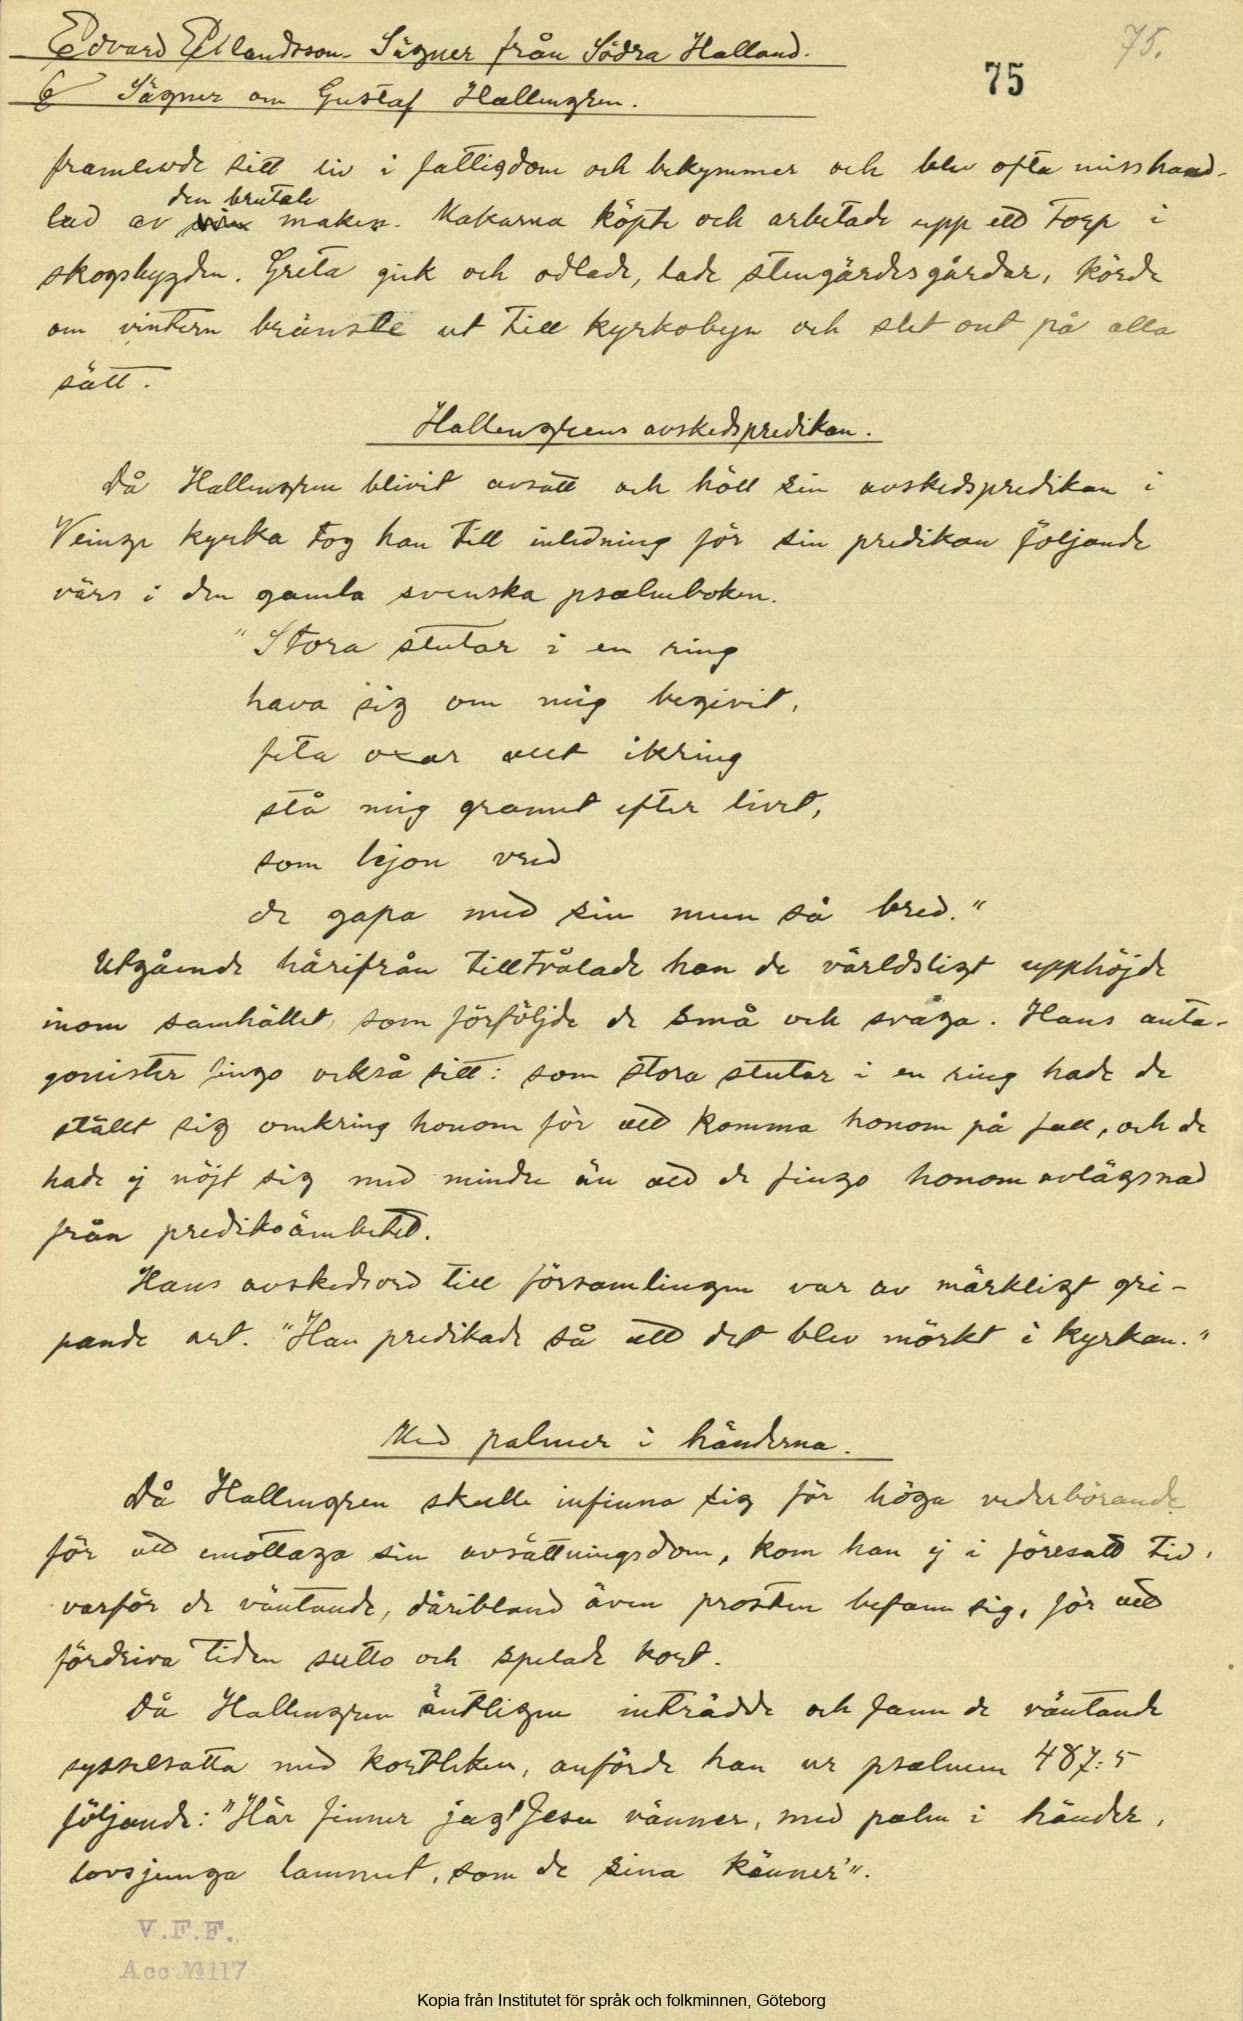 75.
Edvard Erlandsson. Sägner från Södra Halland.
75
6 Sägner om Gustaf Hallengren.
framlevde sitt liv i fattigdom och bekymmer och blev ofta misshand-
den brutale
lad av sin maken. Makarna köpte och arbetade upp ett torp i
skogsbygden. Greta gick och odlade, lade stengärdesgårdar, körde
om vintern bränsle ut till kyrkobyn och slet ont på alla
sätt.
Hallengrens avskedspredikan.
Då Hallengren blivit avsatt och höll sin avskedspredikan i
Veinge kyrka tog han till inledning för sin predikan följande
värs i den gamla svenska psalmboken.
"Stora stutar i en ring
hava sig om mig begivit,
feta oxar allt ikring
stå mig gramt efter livet,
som lejon vred
de gapa med sin mun så bred."
Utgående härifrån tilltvålade han de världsligt upphöjde
inom samhället, som förföljde de små och svaga. Hans anta-
gonister fingo också sitt: som stora stutar i en ring hade de
ställt sig omkring honom för att komma honom på fall, och de
hade ej nöjt sig med mindre än att de fingo honom avlägsnad
från predikoämbetet.
Hans avskedsord till församlingen var av märkligt gri-
pande art. "Han predikade så att det blev mörkt i kyrkan."
Med palmer i händerna.
Då Hallengren skulle infinna sig för höga vederbörande
för att emottaga sin avsättningsdom, kom han ej i föresatt tid,
varför de väntande, däribland även prosten befann sig, för att
fördriva tiden sutto och spelade kort.
Då Hallengren äntligen inträdde och fann de väntande
sysselsatta med kortleken, anförde han ur psalmen 487:5
följande: "Här finner jag' Jesu vänner, med palm i händer,
lovsjunga lammet, som de sina känner'".
V.F.F.
Acc № 117
Kopia från Institutet för språk och folkminnen, Göteborg